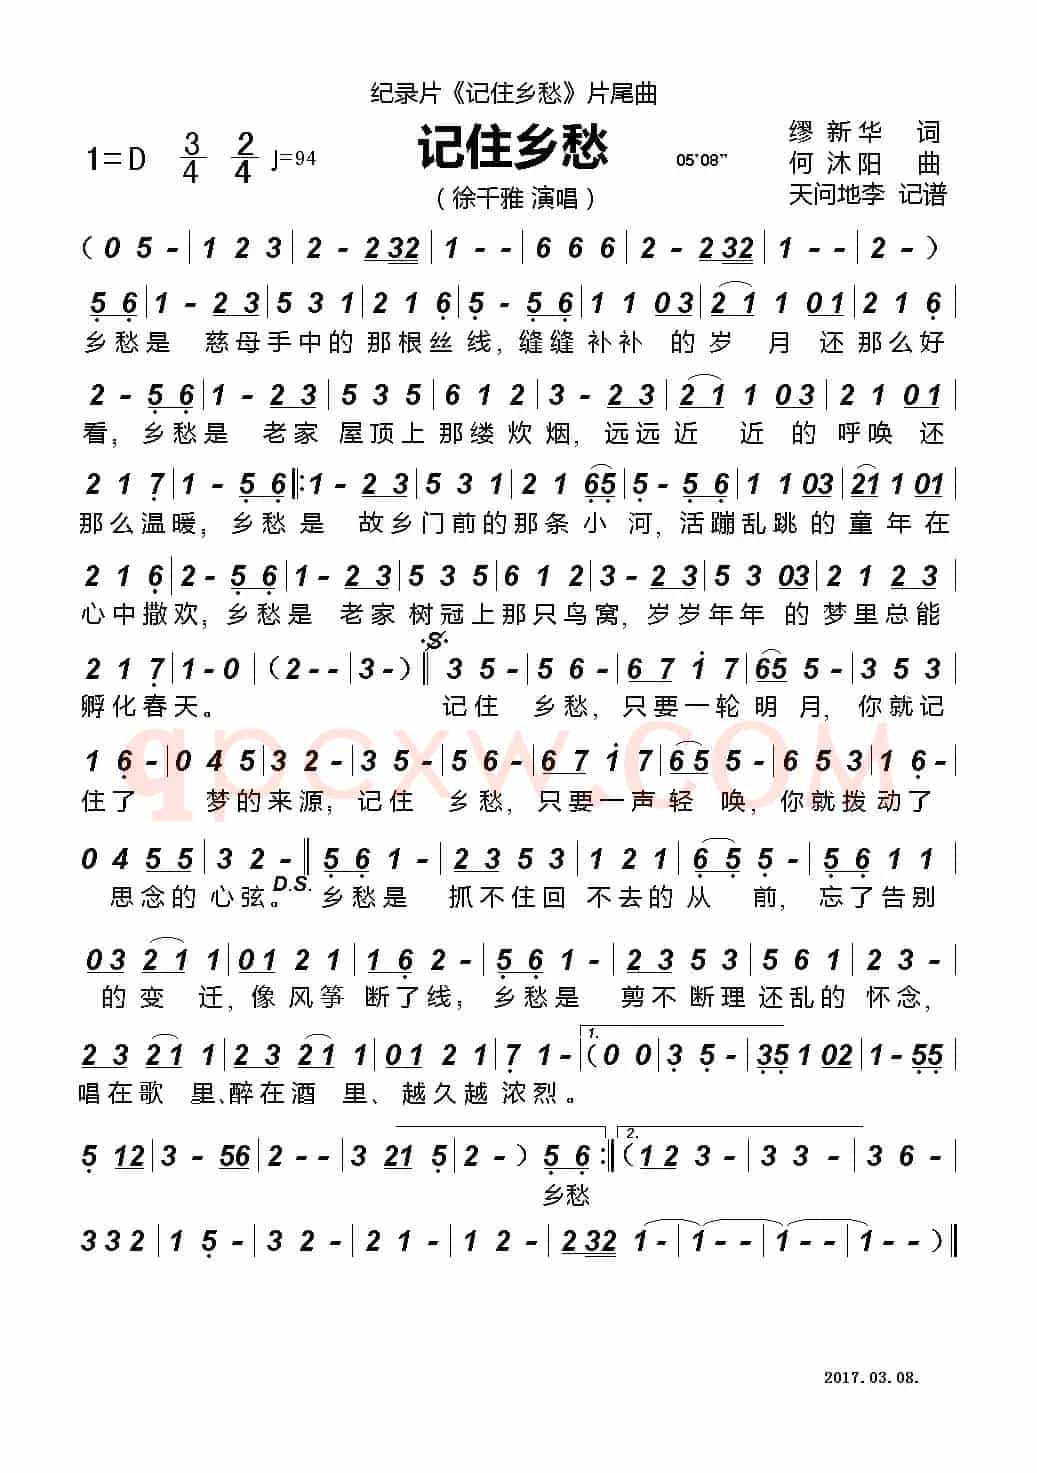 纪录片《记住乡愁》片尾曲
记住乡愁
1=D 3/4 2/4 ♩=94
05'08"
缪新华 词
何沐阳 曲
天问地李 记谱
（徐千雅 演唱）
（ 0 5 - | 1 2 3 | 2 - 2 32 | 1 - - | 6 6 6 | 2 - 2 32 | 1 - - | 2 - ）
5 6 | 1 - 2 3 | 5 3 1 | 2 1 6 | 5 - 5 6 | 1 1 0 3 | 2 1 1 0 1 | 2 1 6 |
乡愁是 慈母手中的那根丝线，缝缝补补 的岁 月还那么好
2 - 5 6 | 1 - 2 3 | 5 3 5 | 6 1 2 | 3 - 2 3 | 2 1 1 0 3 | 2 1 0 1 |
看，乡愁是 老家 屋顶上那缕炊烟，远远近 近的呼唤还
2 1 7 | 1 - 5 6 ‖: 1 - 2 3 | 5 3 1 | 2 1 65 | 5 - 5 6 | 1 1 03 | 21 1 01 |
那么温暖；乡愁是 故乡门前的那条小 河，活蹦乱跳的童年在
2 1 6 | 2 - 5 6 | 1 - 2 3 | 5 3 5 | 6 1 2 | 3 - 2 3 | 5 3 03 | 2 1 2 3 |
心中撒欢；乡愁是 老家树冠上那只鸟窝，岁岁年年 的梦里总能
2 1 7 | 1 - 0 | （ 2 - - | 3 - ）‖ 3 5 - | 5 6 - | 6 7 1 7 | 65 5 - | 3 5 3 |
孵化春天。 记住 乡愁，只要一轮明 月，你就记
1 6 - | 0 4 5 | 3 2 - | 3 5 - | 5 6 - | 6 7 1 7 | 65 5 - | 6 5 3 | 1 6 - |
住了 梦的来源；记住 乡愁，只要一声轻 唤，你就拨动了
0 4 5 5 | 3 2 - ‖ 5 6 1 - | 2 3 5 3 | 1 2 1 | 6 5 5 - | 5 6 1 1 |
思念的 心弦。D.S. 乡愁是 抓不住回 不去的从 前，忘了告别
0 3 2 1 1 | 0 1 2 1 | 1 6 2 - | 5 6 1 - | 2 3 5 3 | 5 6 1 | 2 3 - |
的变 迁，像风筝 断了线；乡愁是 剪不断理还乱的怀念，
2 3 21 1 | 2 3 21 1 | 01 2 1 | 7 1 - | 1. （ 0 0 | 3 5 - | 35 1 02 | 1 - 55 |
唱在歌 里、醉在酒 里、越久越浓烈。
5 12 | 3 - 56 | 2 - - | 3 21 5 | 2 - ） 5 6 :‖ 2. （ 1 2 3 - | 3 3 - | 3 6 - |
乡愁
3 3 2 | 1 5 - | 3 2 - | 2 1 - | 1 2 - | 2 32 1 - | 1 - - | 1 - - | 1 - - ）‖
qpcxw.COM
2017.03.08.